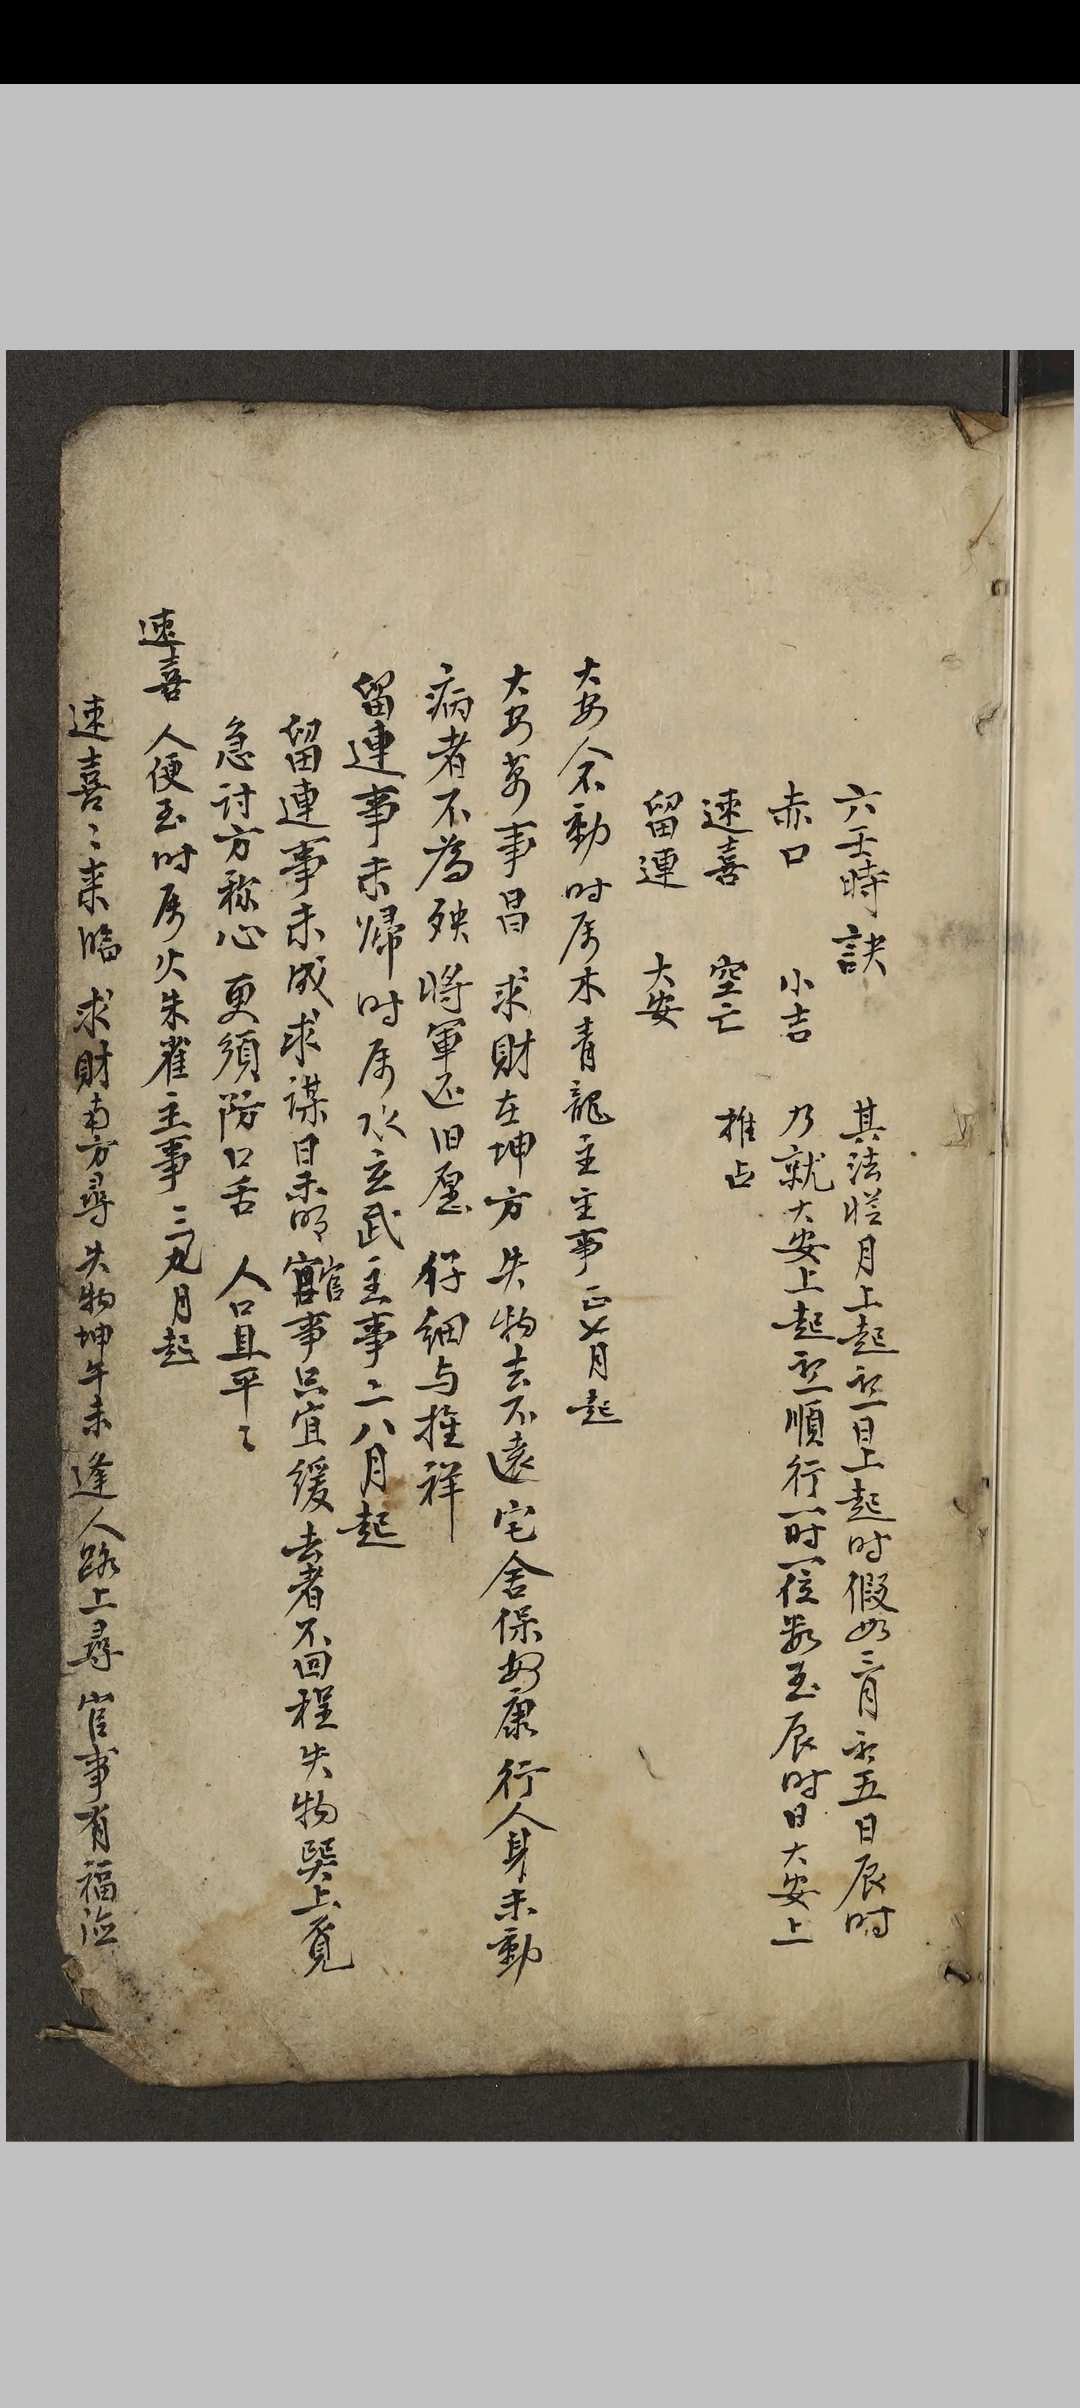 六壬時訣 其法從月上起初一日上起时假如三月初五日辰时
赤口 小吉 乃就大安上起初一順行一时一位數至辰时日大安上
速喜 空亡 推占
留連 大安
大安 不動时属木青龍主主事正七月起
大安萬事昌 求財在坤方 失物去不遠 宅舍保安康 行人身未動
病者不為殃 將軍还旧 仔細与推祥
留連事未歸时属水玄武主事二八月起
留連事未成求謀日未明 官事只宜缓 去者不回程失物巽上覓
急讨方称心 更須防口舌 人口且平〻
速喜 人便至时属火朱雀主事 三九月起
速喜〻来臨 求財南方尋 失物坤午未 逢人路上尋 官事有福